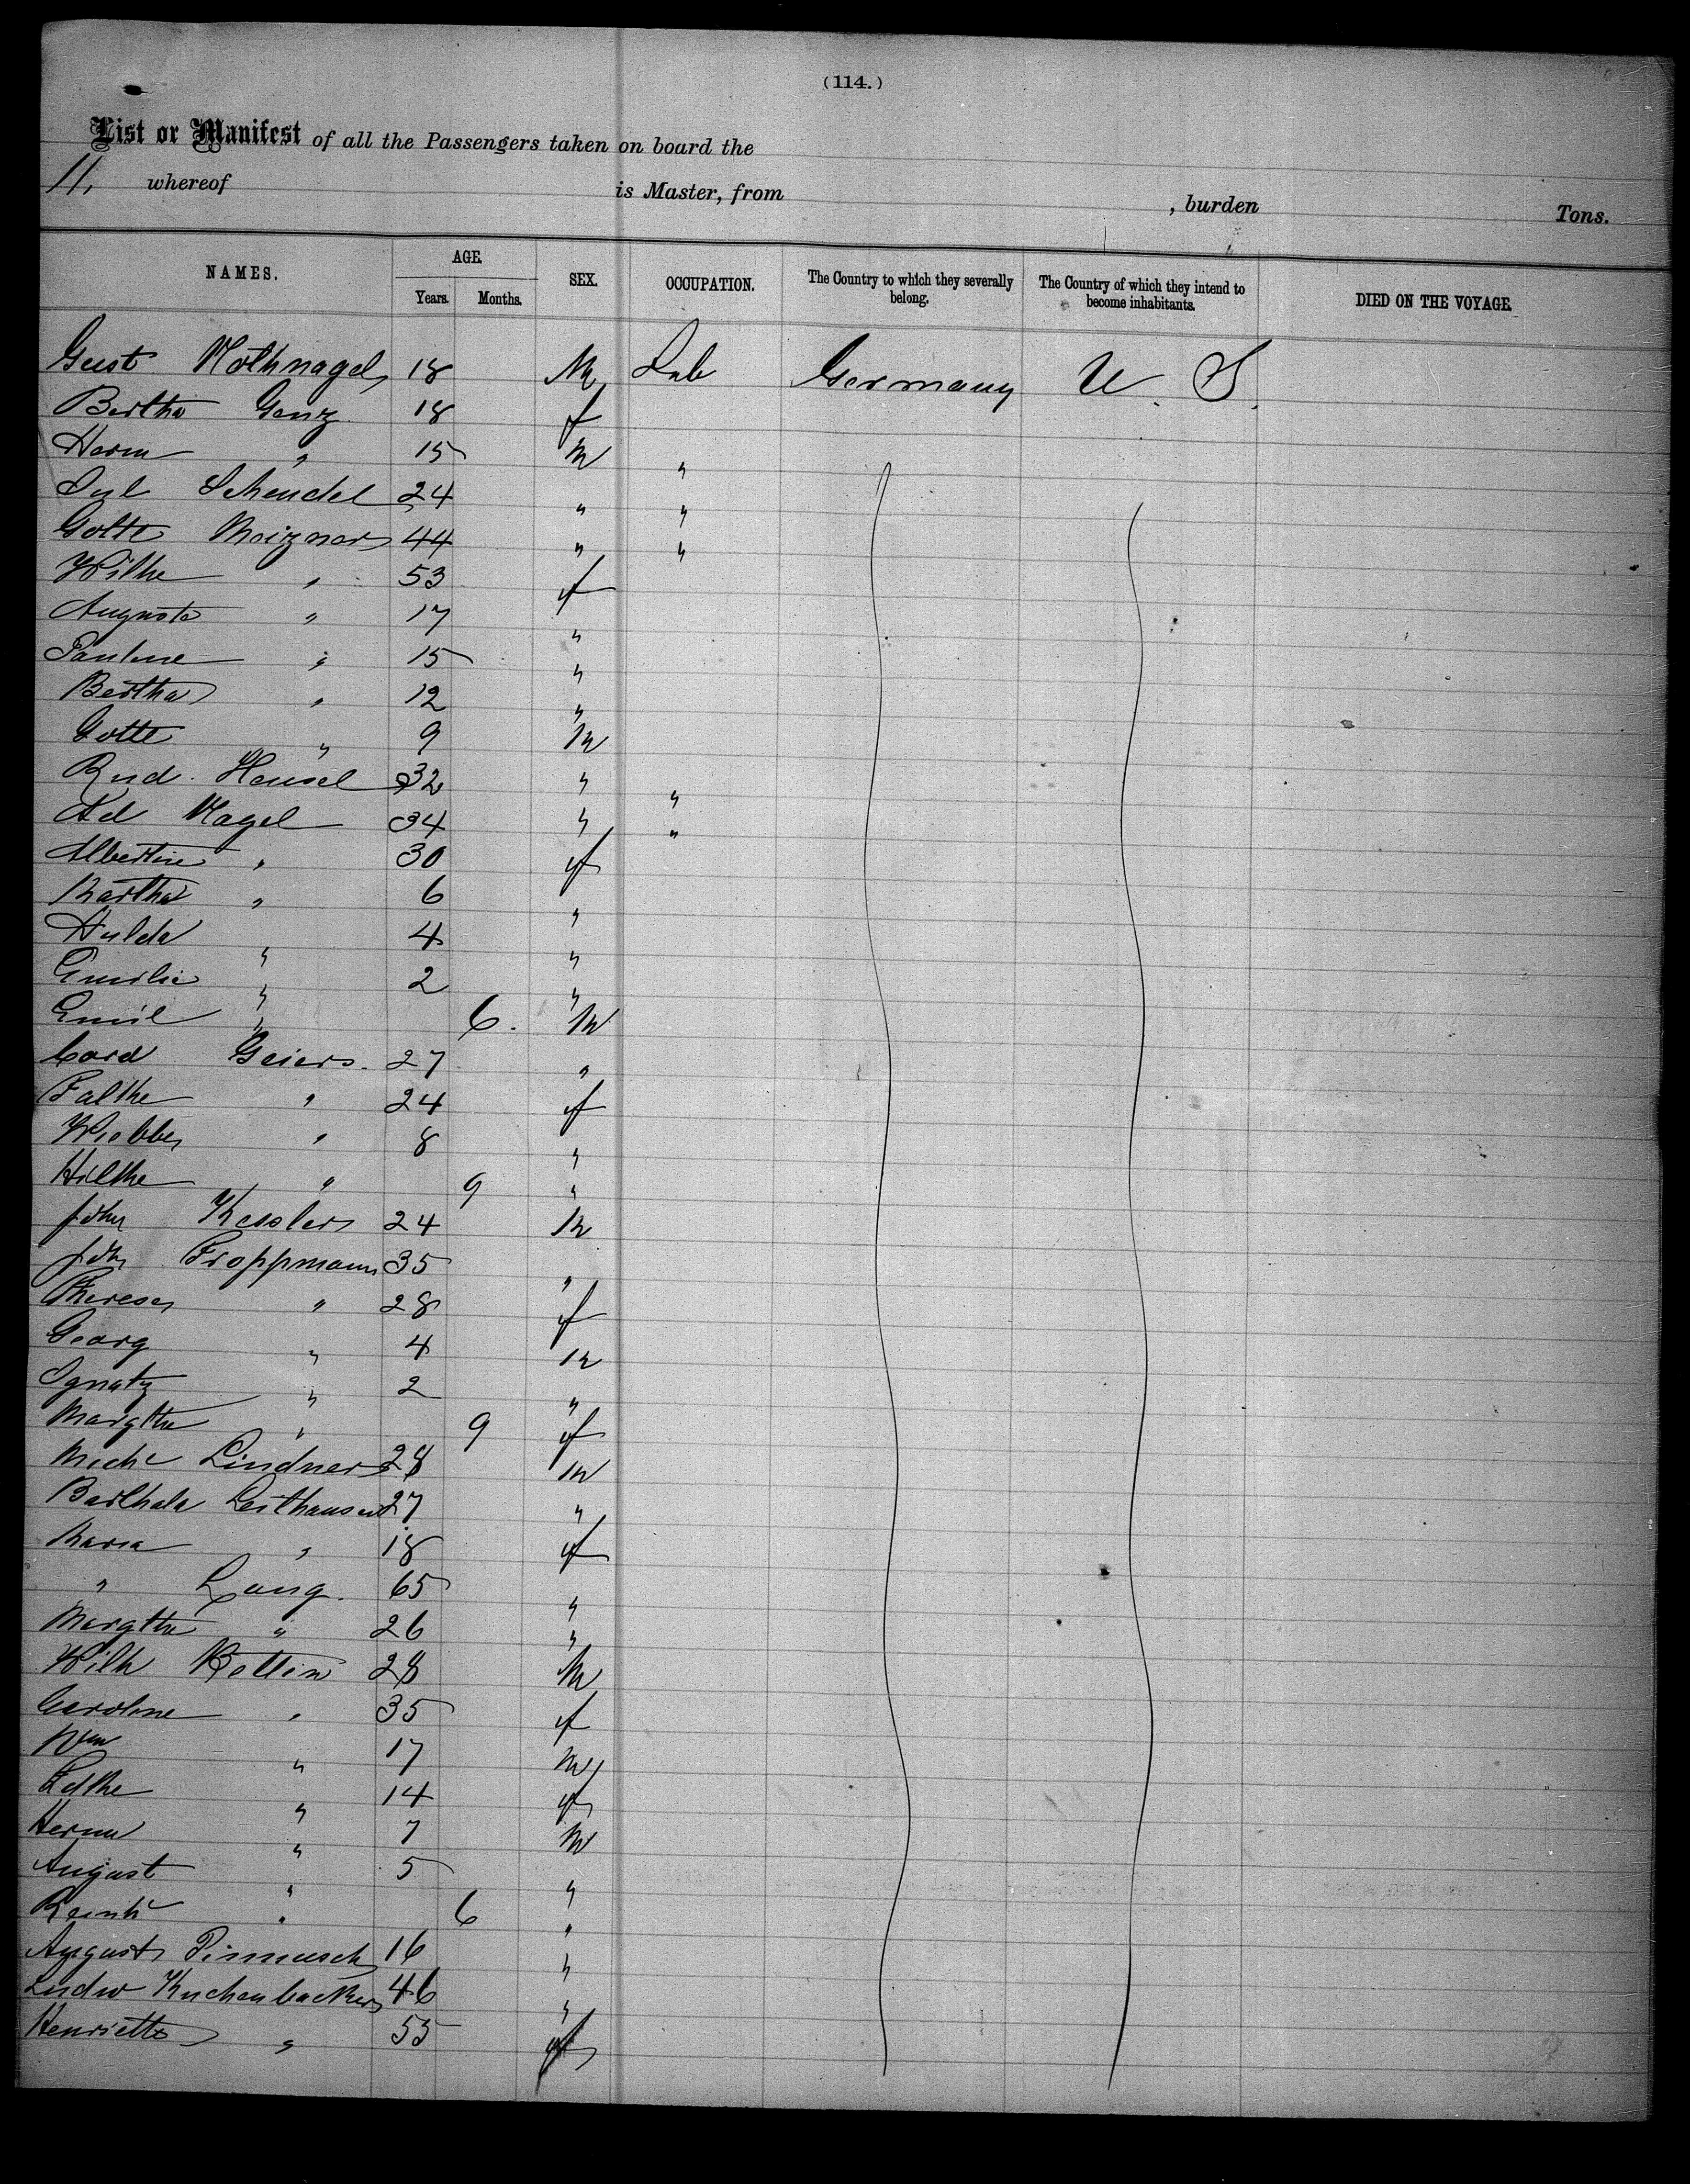 (114.)
List or Manifest of all the Passengers taken on board the
11, whereof is Master, from , burden Tons.
NAMES. AGE. SEX. OCCUPATION. The Country to which they severally belong. The Country of which they intend to become inhabitants. DIED ON THE VOYAGE.
Years. Months.
Gust Nothnagel 18 M Lab Germany U. S.
Bertha Genz 18 f
Herm " 15 M "
Schendel 24 " "
Gotte Meizner 44 " "
Wilhe " 53 f
Auguste " 17 "
Pauline " 15 "
Bertha " 12 "
Gotte " 9 M
Rud. Hensel 32 " "
Ad Nagel 34 " "
Albertine " 30 f
Martha " 6 "
Hulda " 4 "
Emilie " 2 "
Emil " 6. M
Cord Geiers. 27 "
Falthe " 24 f
Wiebbe " 8 "
Hilthe " 9 "
John Kessler 24 M
Joh Troppmann 35 "
Therese " 28 f
Georg " 4 M
Ignatz " 2 "
Margthe " 9 f
Mich Lindner 28 M
Leithauser 27 "
Maria " 18 f
" Lang. 65 "
Margthe " 26 "
Wilh Bottin 28 M
Caroline " 35 f
Wm " 17 M
" 14 f
Herm " 7 M
August " 5 "
Reinh " 6 "
August 16 "
Ludw Kuchenbacker 46 "
Henriette " 55 f